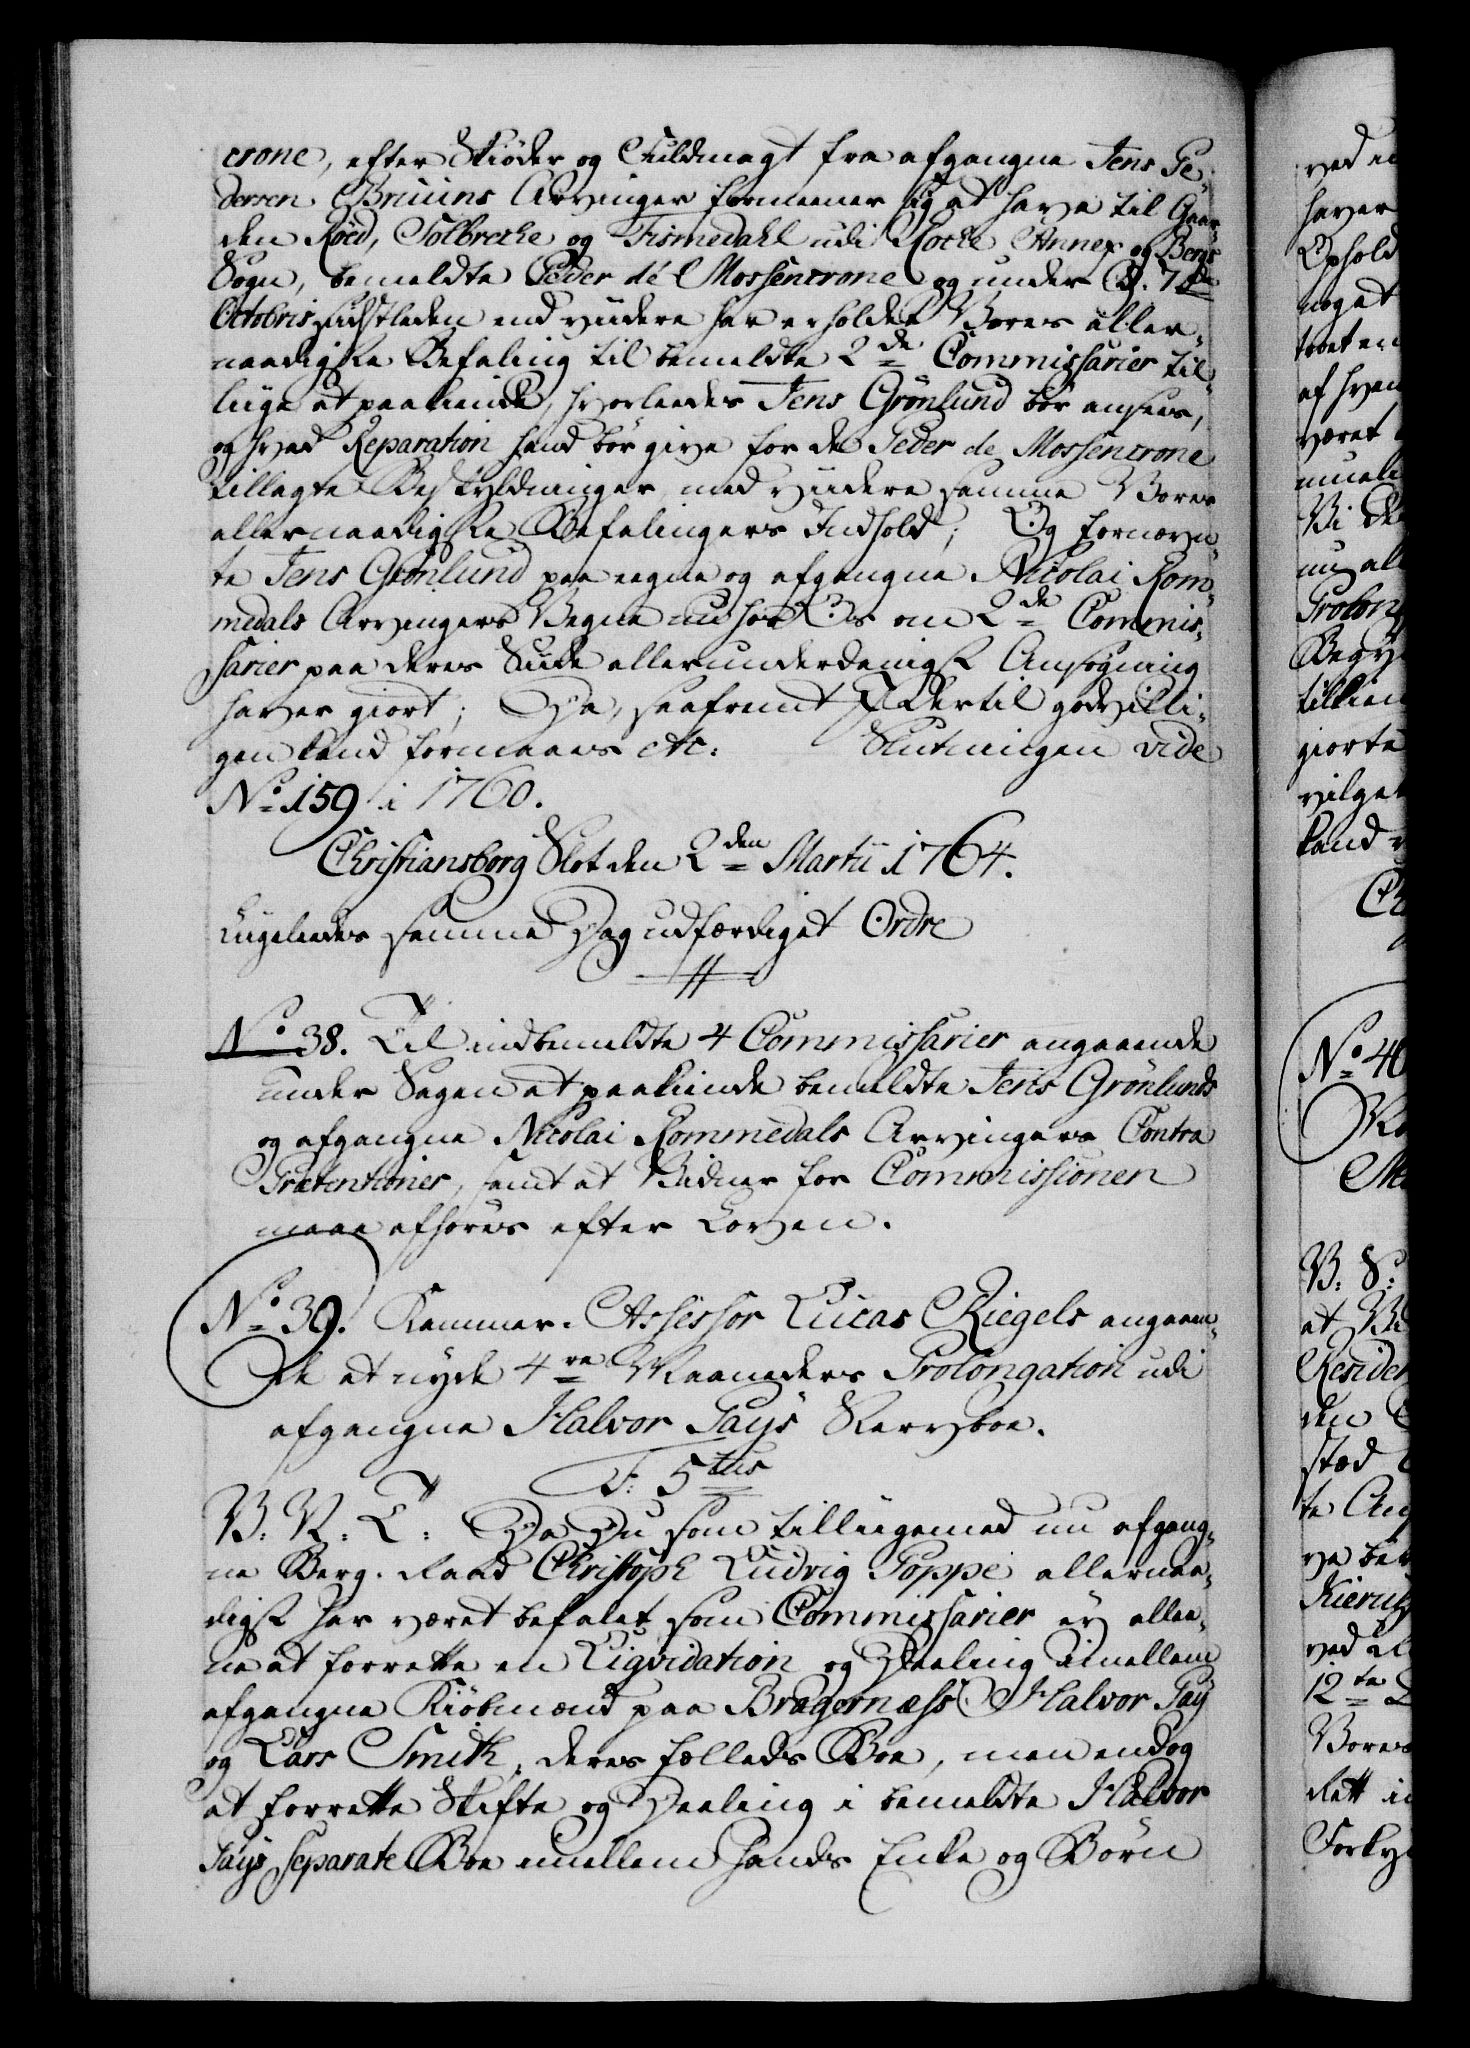 crone, efter Skiøder og Fuldmagt fra afgangne Jens Pe-
dersen Bruuns Arvinger formeener sig at have til Gaar-
den Röed, Solbrecke og Tismedahl udi Rocke Annex og Bergs
Sogn, bemeldte Peder de Mossencrone og under D. 7de
Octobris sidstleden end viidere har erholdet Vores aller-
naadigste Befaling til bemeldte 2de Commissarier til-
liige at paakiende, hvorleedes Jens Grönlund bör ansees,
og hvad Reparation hand bör give for de Peder de Mossencrone
tillagte Beskyldninger, med viidere samme Vores
allernaadigste Befalingers Indhold; Og fornævn-
te Jens Grönlund paa egne og afgangne Nicolai Rom-
medals Arvingers Vegne nu hos Os om 2de Commis-
sarier paa deres Side allerunderdanigst Ansögning
haver giort; Da, saafremt I dertil godvilli-
gen kand formaaes etc: Slutningen vide
No 159 i 1760.
Christiansborg Slot den 2den Martii 1764.
Liigeleedes samme Dag udfærdiget Ordre
No 38. Til indbemeldte 4 Commissarier angaaende
under Sagen at paakiende bemeldte Jens Grönlunds
og afgangne Nicolai Rommedals Arvingers Contra
Prætentioner, samt at Vidner for Commissionen
maae afhöres efter Loven.
No 39. Kammer-Assessor Lucas Riegels angaaen-
de at nyde 4re Maaneders Prolongation udi
afgangne Halvor Pays Stervboe.
F: 5tus
V: V: T: Da Du som tilliigemed nu afgang-
ne Berg-Raad Christoph Ludvig Poppe allernaa-
digst har været befalet som Commissarier ey allee-
ne at forrette en Liqvidation og Deeling imellem
afgangne Kiöbmænd paa Bragernæss Halvor Pay
og Lars Smith, deres fælleds Boe, men endog
at forrette Skifte og Deeling i bemeldte Halvor
Pays separate Boe imellem hands Enke og Börn